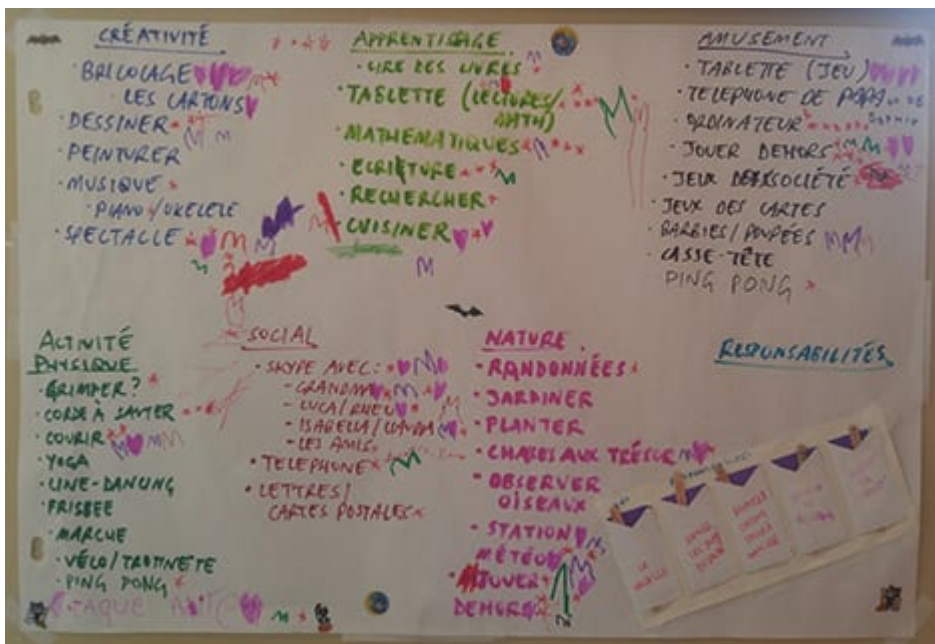 CRÉATIVITÉ
· BRICOLAGE
LES CARTONS
· DESSINER
· PEINTURER
· MUSIQUE
· PIANO/UKELELE
· SPECTACLE
M
M
APPRENTISSAGE
· LIRE DES LIVRES
· TABLETTE (LECTURES/
MATH)
· MATHEMATIQUES
· ECRITURE
· RECHERCHER
· CUISINER
M
AMUSEMENT
· TABLETTE (JEU)
· TELEPHONE DE PAPA
· ORDINATEUR
· JOUER DEHORS
· JEUX DE SOCIÉTÉ
· JEUX DES CARTES
· BARBIES/POUPÉES
· CASSE-TÊTE
PING PONG
ACTIVITÉ
PHYSIQUE
· GRIMPER?
· CORDE A SAUTER
· COURIR
· YOGA
· LINE-DANCING
· FRISBEE
· MARCHE
· VÉLO/TROTINETE
· PING PONG
SOCIAL
· SKYPE AVEC:
- GRANDMA
- LES AMIS
· TELEPHONE
· LETTRES/
CARTES POSTALES
NATURE
· RANDONNÉES
· JARDINER
· PLANTER
· CHASSES AUX TRÉSOR
· OBSERVER
OISEAUX
· STATION
MÉTÉO
· JOUER
DEHORS
RESPONSABILITÉS